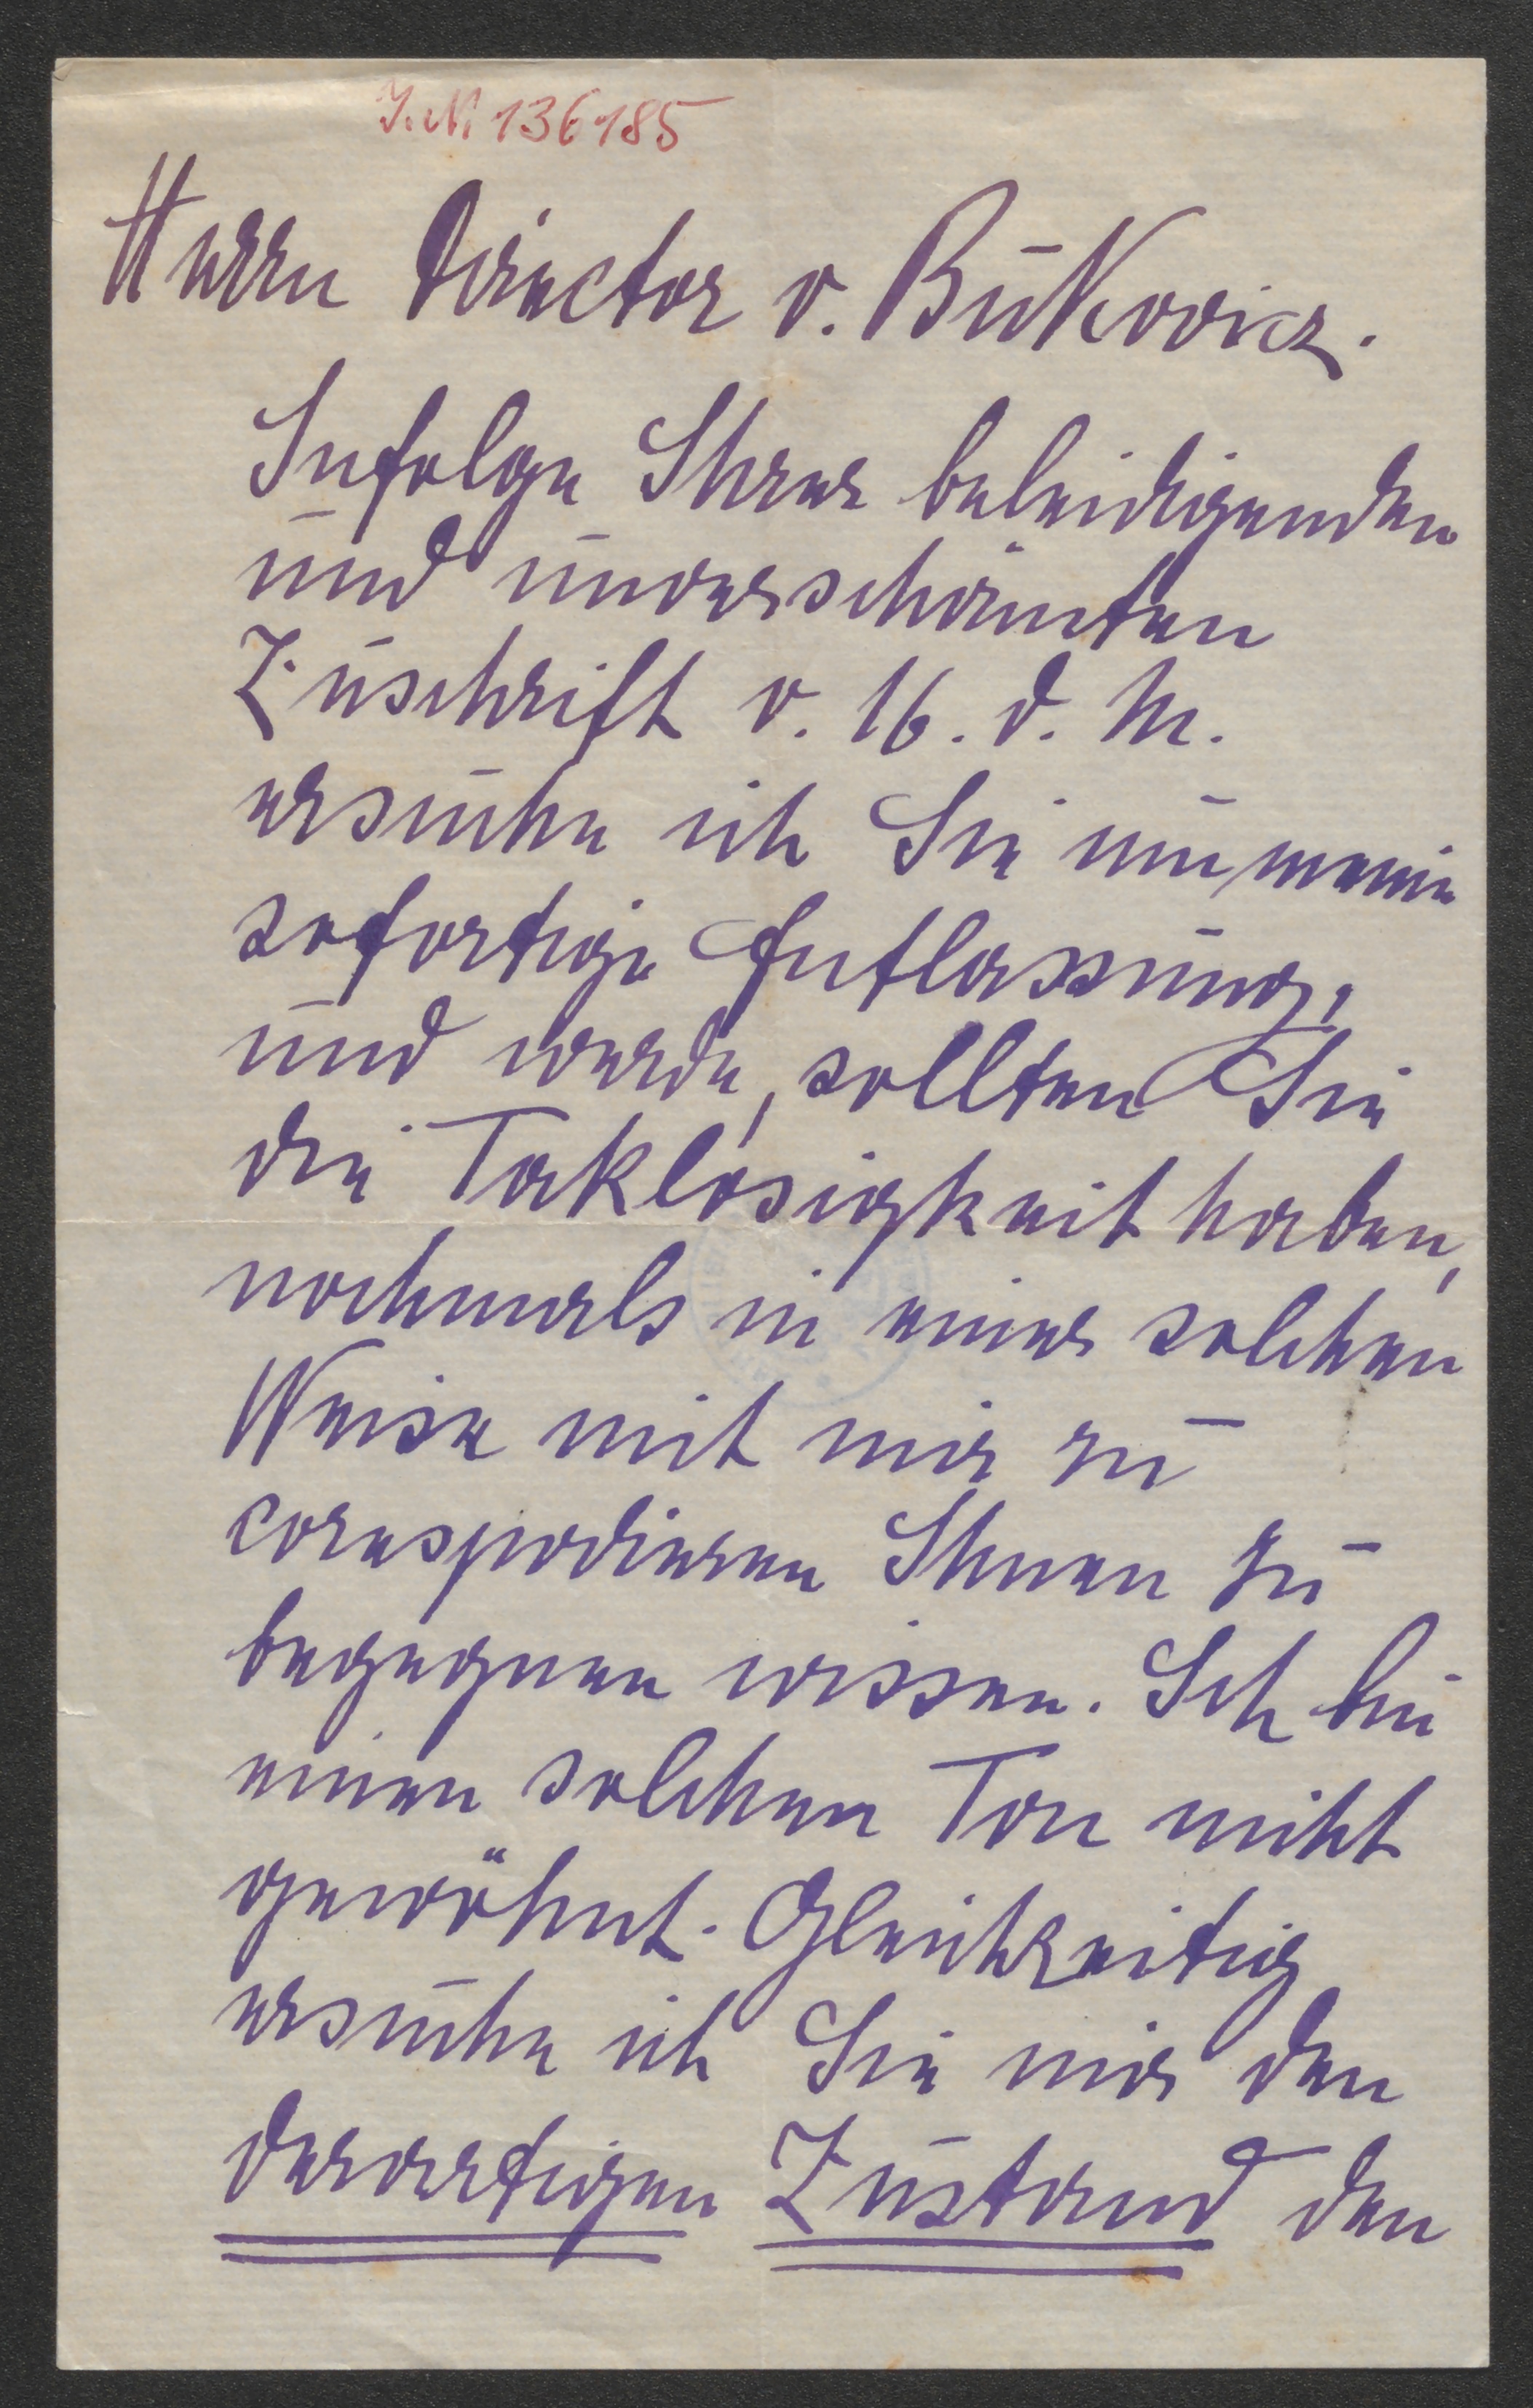 I. N. 136185
Herrn Director v. Bukovicz.
Infolge Ihrer beleidigenden
und unverschämten
Zuschrift v. 16. d. M.
ersuche ich Sie um meine
sofortige Entlassung,
und werde, sollten Sie
die Taklosigkeit haben,
nochmals in einer solchen
Weise mit mir zu
corespodieren Ihnen zu
begegnen wissen. Ich bin
einen solchen Ton nicht
gewöhnt. Gleichzeitig
ersuche ich Sie mir den
derartigen Zustand den